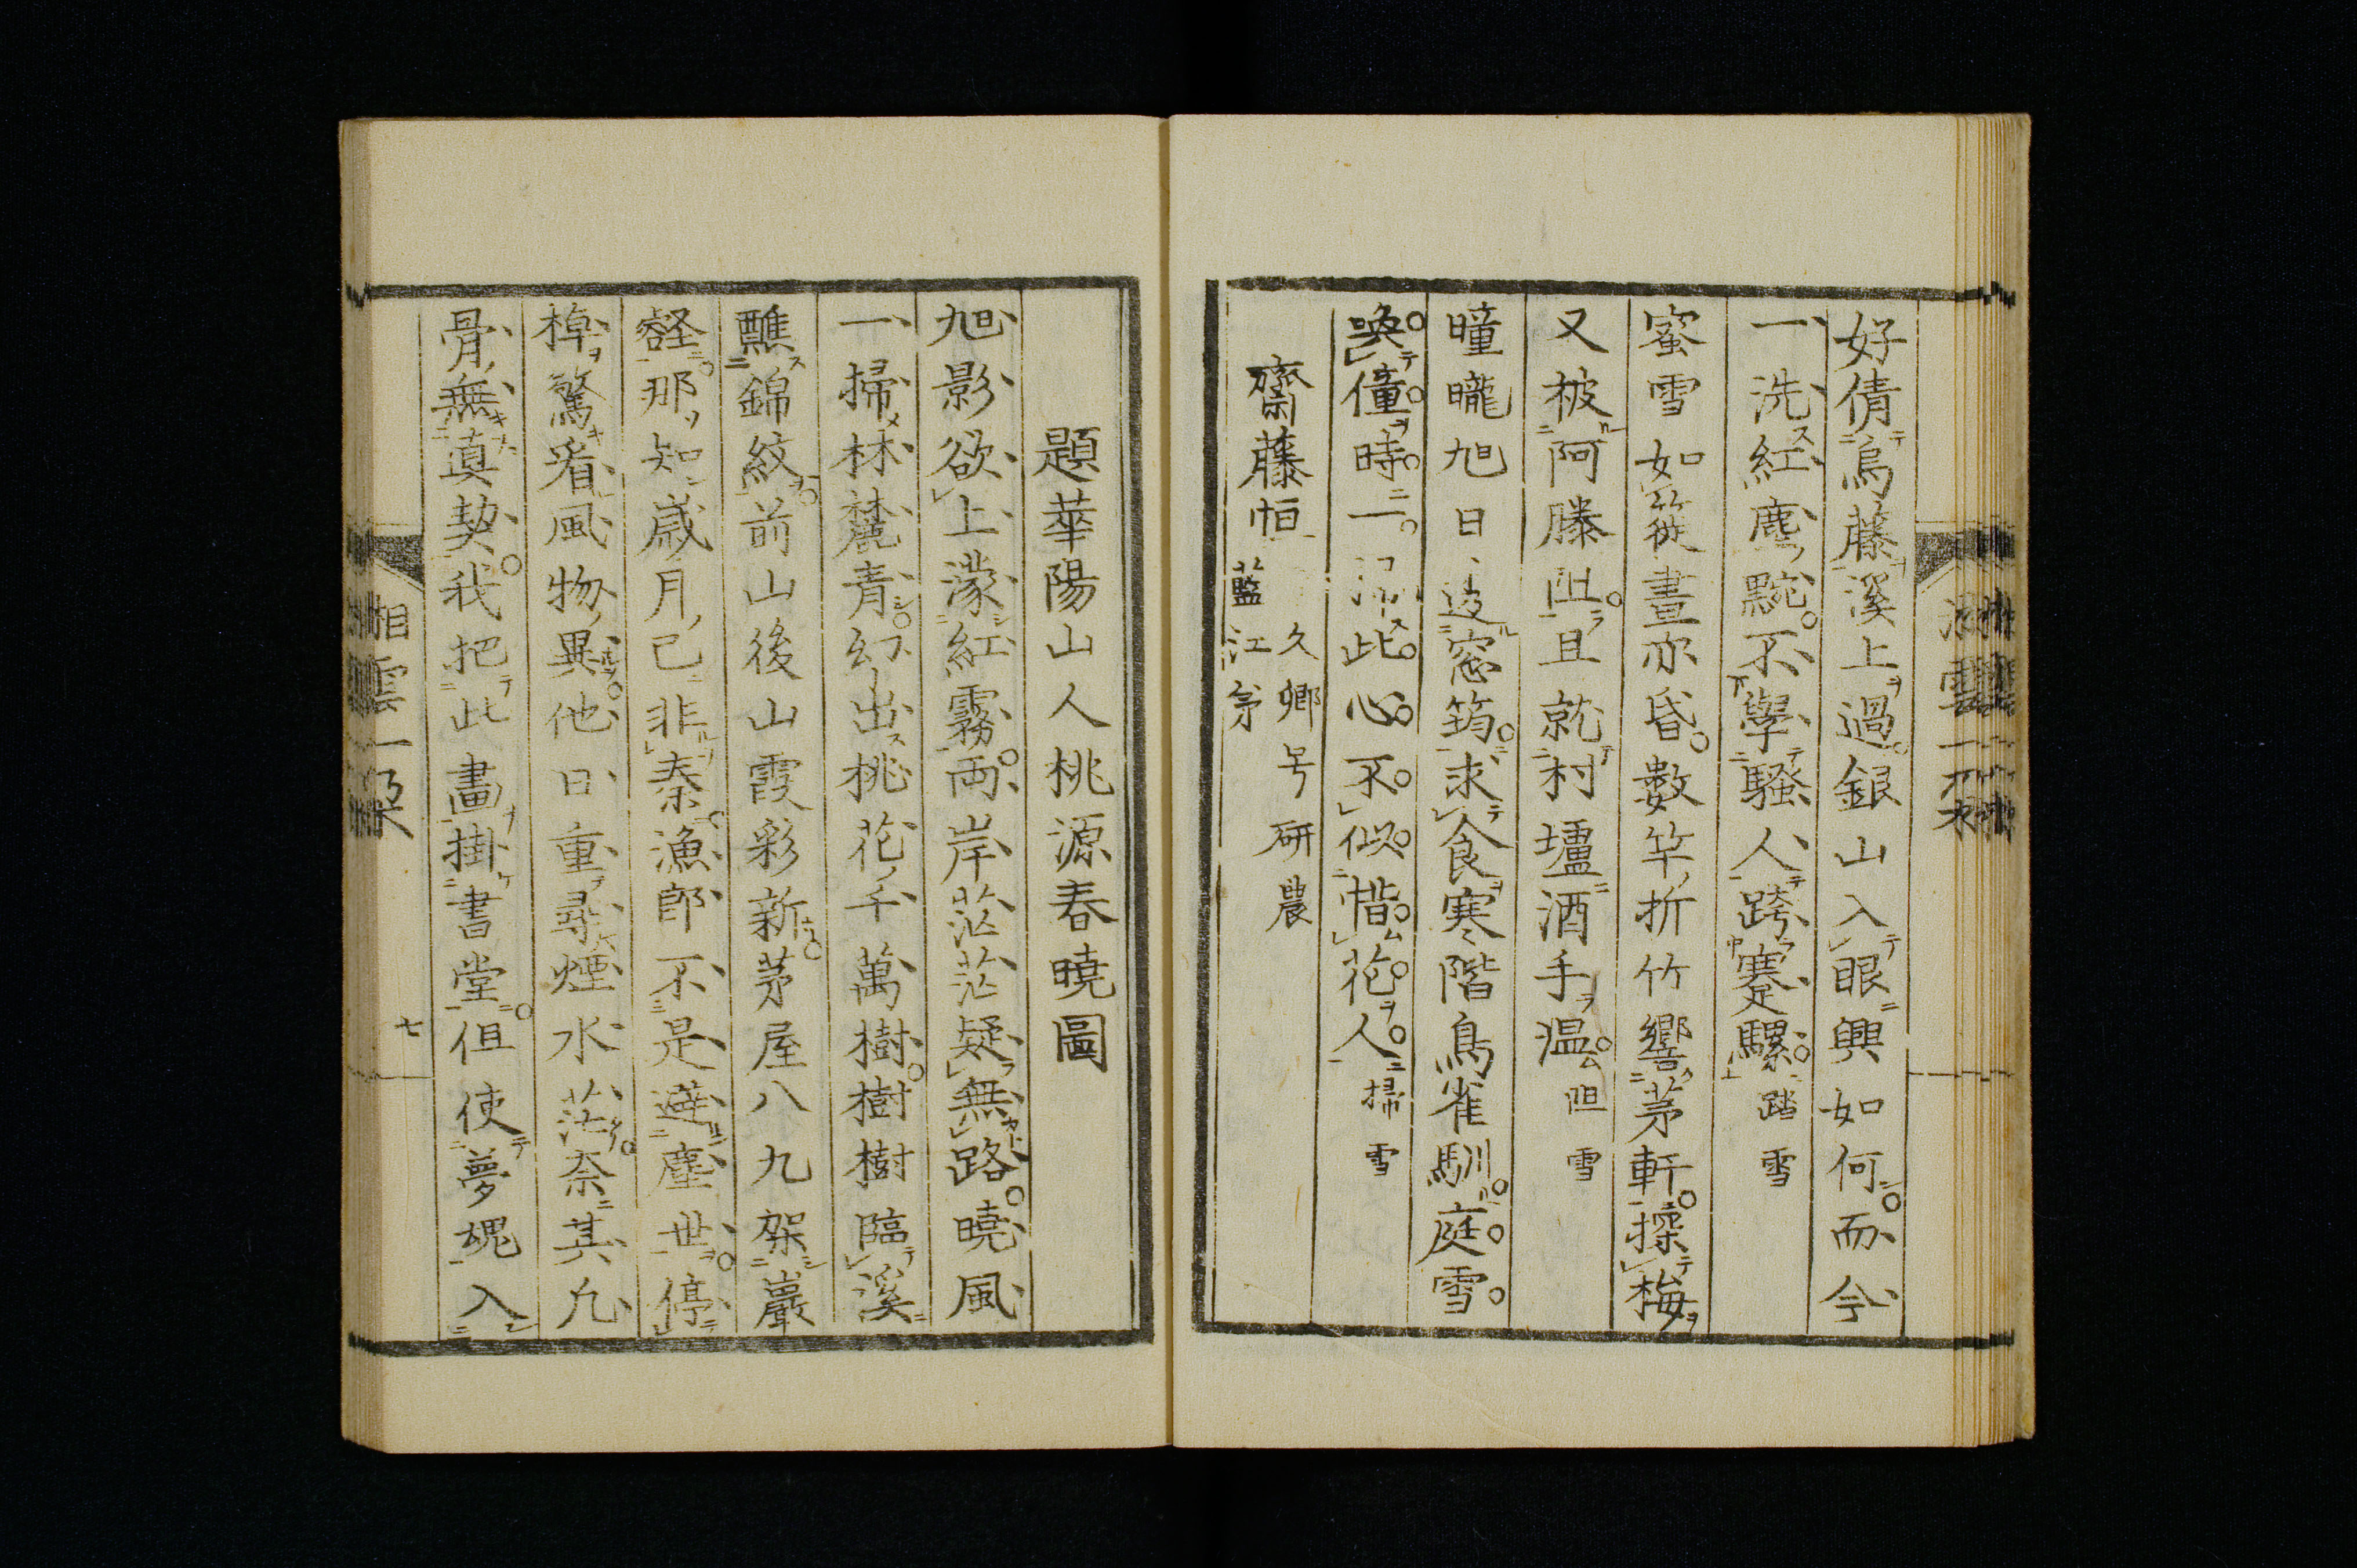 好倩烏藤溪上過銀山入眼興如何而今
一洗紅塵黦不學騷人跨蹇騾 踏雪
蜜雪如簁晝亦昏數竿折竹響茅軒探梅
又被阿滕阻且就村壚酒手温 阻雪
瞳曨旭日透窓筠求食寒階鳥雀馴庭雪
喚僮時一 此心不似惜花人 掃雪
齋藤恒 久卿号研農
藍江弟
題華陽山人桃源春曉圖
旭影欲上濛紅霧両岸茫茫疑無路曉風
一掃林麓青幻出桃花千萬樹樹樹臨溪
蘸錦紋前山後山霞彩新茅屋八九架巖
壑那知歲月已非秦漁郎不是避塵世停
棹驚看風物異他日重尋煙水茫奈其凡
骨無真契我把此畫掛書堂但使夢魂入
相雲一朶
七